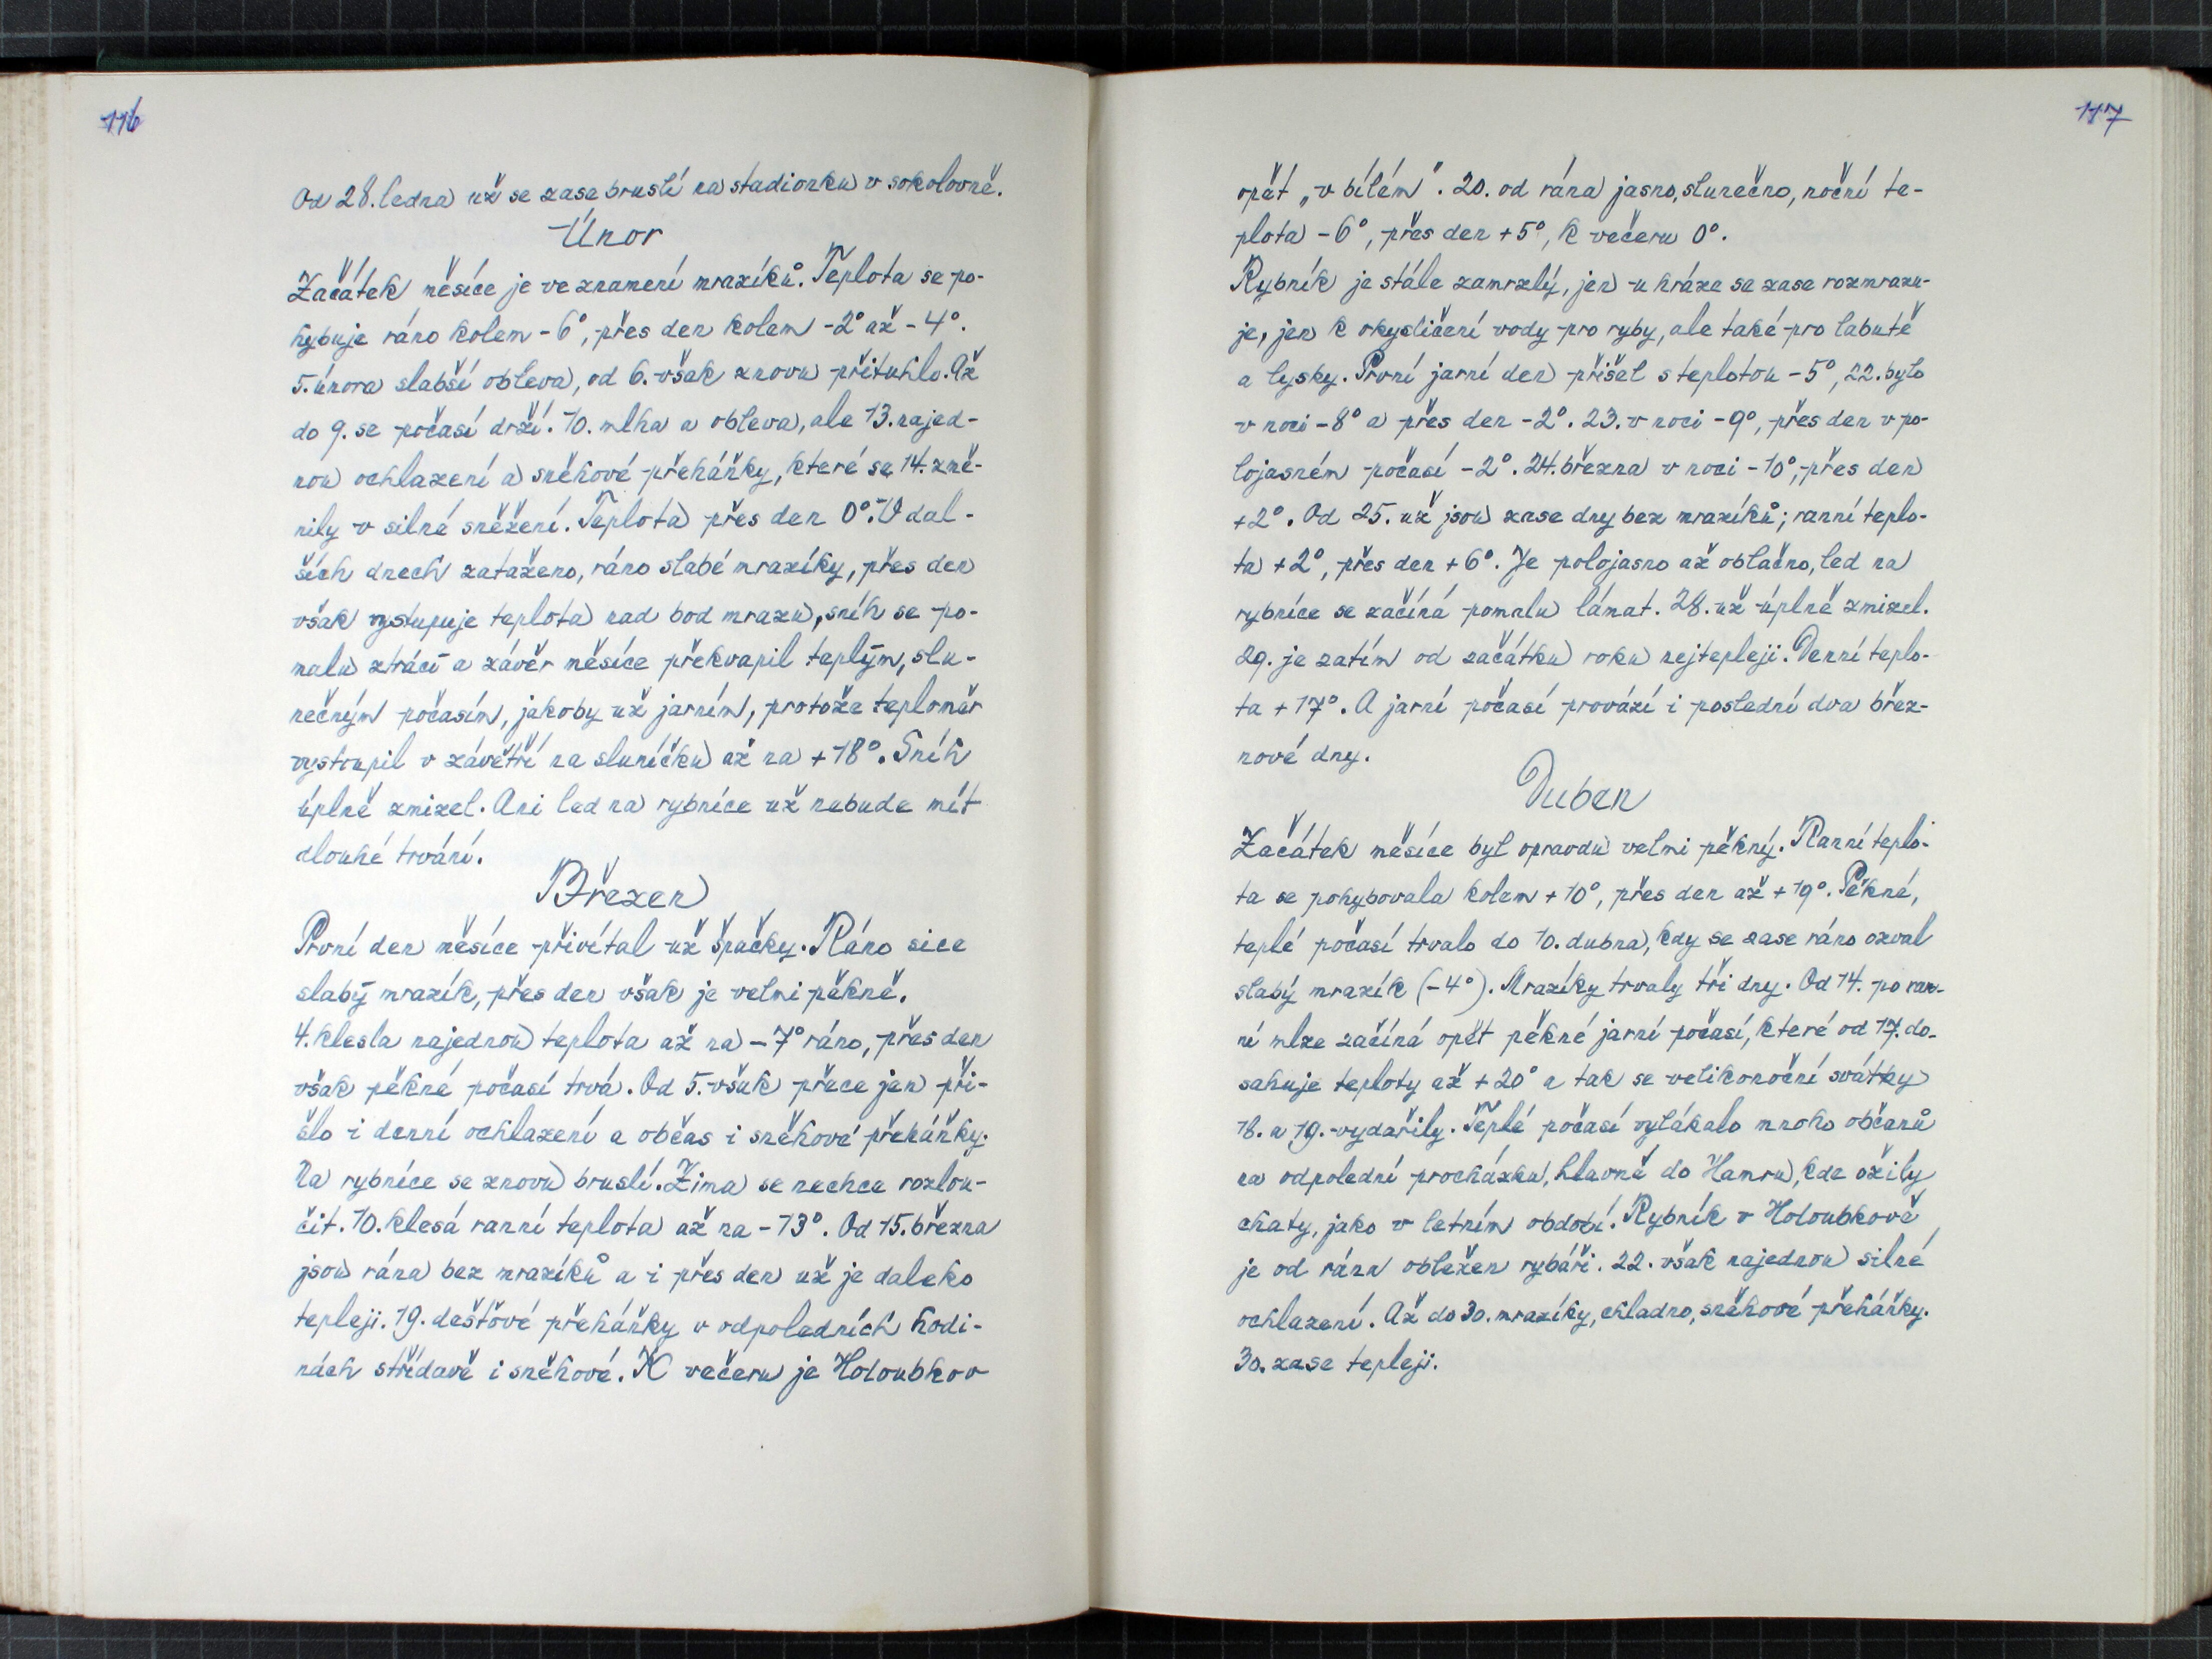 116
Od 28. ledna už se zase bruslí na stadionku v sokolovně.
Únor
Začátek měsíce je ve znamení mrazíků. Teplota se po-
hybuje ráno kolem -6°, přes den kolem -2° až -4°.
5. února slabší obleva, od 6. však znovu přituhlo. Až
do 9. se počasí drží. 10. mlha a obleva, ale 13. najed-
nou ochlazení a sněhové přeháňky, které se 14. změ-
nily v silné sněžení. Teplota přes den 0°. V dal-
ších dnech zataženo, ráno slabé mrazíky, přes den
však vystupuje teplota nad bod mrazu, sníh se po-
malu ztrácí a závěr měsíce překvapil teplým, slu-
nečným počasím, jakoby už jarním, protože teploměr
vystoupil v závětří na sluníčku až na +18°. Sníh
úplně zmizel. Ani led na rybníce už nebude mít
dlouhé trvání.
Březen
První den měsíce přivítal už špačky. Ráno sice
slabý mrazík, přes den však je velmi pěkně.
4. klesla najednou teplota až na -7° ráno, přes den
však pěkné počasí trvá. Od 5. však přece jen při-
šlo i denní ochlazení a občas i sněhové přeháňky.
Na rybníce se znovu bruslí. Zima se nechce rozlou-
čit. 10. klesá ranní teplota až na -13°. Od 15. března
jsou rána bez mrazíků a i přes den už je daleko
tepleji. 19. dešťové přeháňky v odpoledních hodi-
nách střídavě i sněhové. K večeru je Holoubkov
117
opět „v bílém". 20. od rána jasno, slunečno, noční te-
plota -6°, přes den +5°, k večeru 0°.
Rybník je stále zamrzlý, jen u hráze se zase rozmrazu-
je, jen k okysličení vody pro ryby, ale také pro labutě
a lysky. První jarní den přišel s teplotou -5°, 22. bylo
v noci -8° a přes den -2°. 23. v noci -9°, přes den v po-
lojasném počasí -2°. 24. března v noci -10°, přes den
+2°. Od 25. už jsou zase dny bez mrazíků; ranní teplo-
ta +2°, přes den +6°. Je polojasno až oblačno, led na
rybníce se začíná pomalu lámat. 28. už úplně zmizel.
29. je zatím od začátku roku nejtepleji. Denní teplo-
ta +17°. A jarní počasí provází i poslední dva břez-
nové dny.
Duben
Začátek měsíce byl opravdu velmi pěkný. Ranní teplo-
ta se pohybovala kolem +10°, přes den až +19°. Pěkné,
teplé počasí trvalo do 10. dubna, kdy se zase ráno ozval
slabý mrazík (-4°). Mrazíky trvaly tři dny. Od 14. po ran-
ní mlze začíná opět pěkné jarní počasí, které od 17. do-
sahuje teploty až +20° a tak se velikonoční svátky
18. a 19. vydařily. Teplé počasí vylákalo mnoho občanů
na odpolední procházku, hlavně do Hamru, kde ožily
chaty, jako v letním období. Rybník v Holoubkově
je od rána obležen rybáři. 22. však najednou silné
ochlazení. Až do 30. mrazíky, chladno, sněhové přeháňky.
30. zase tepleji.